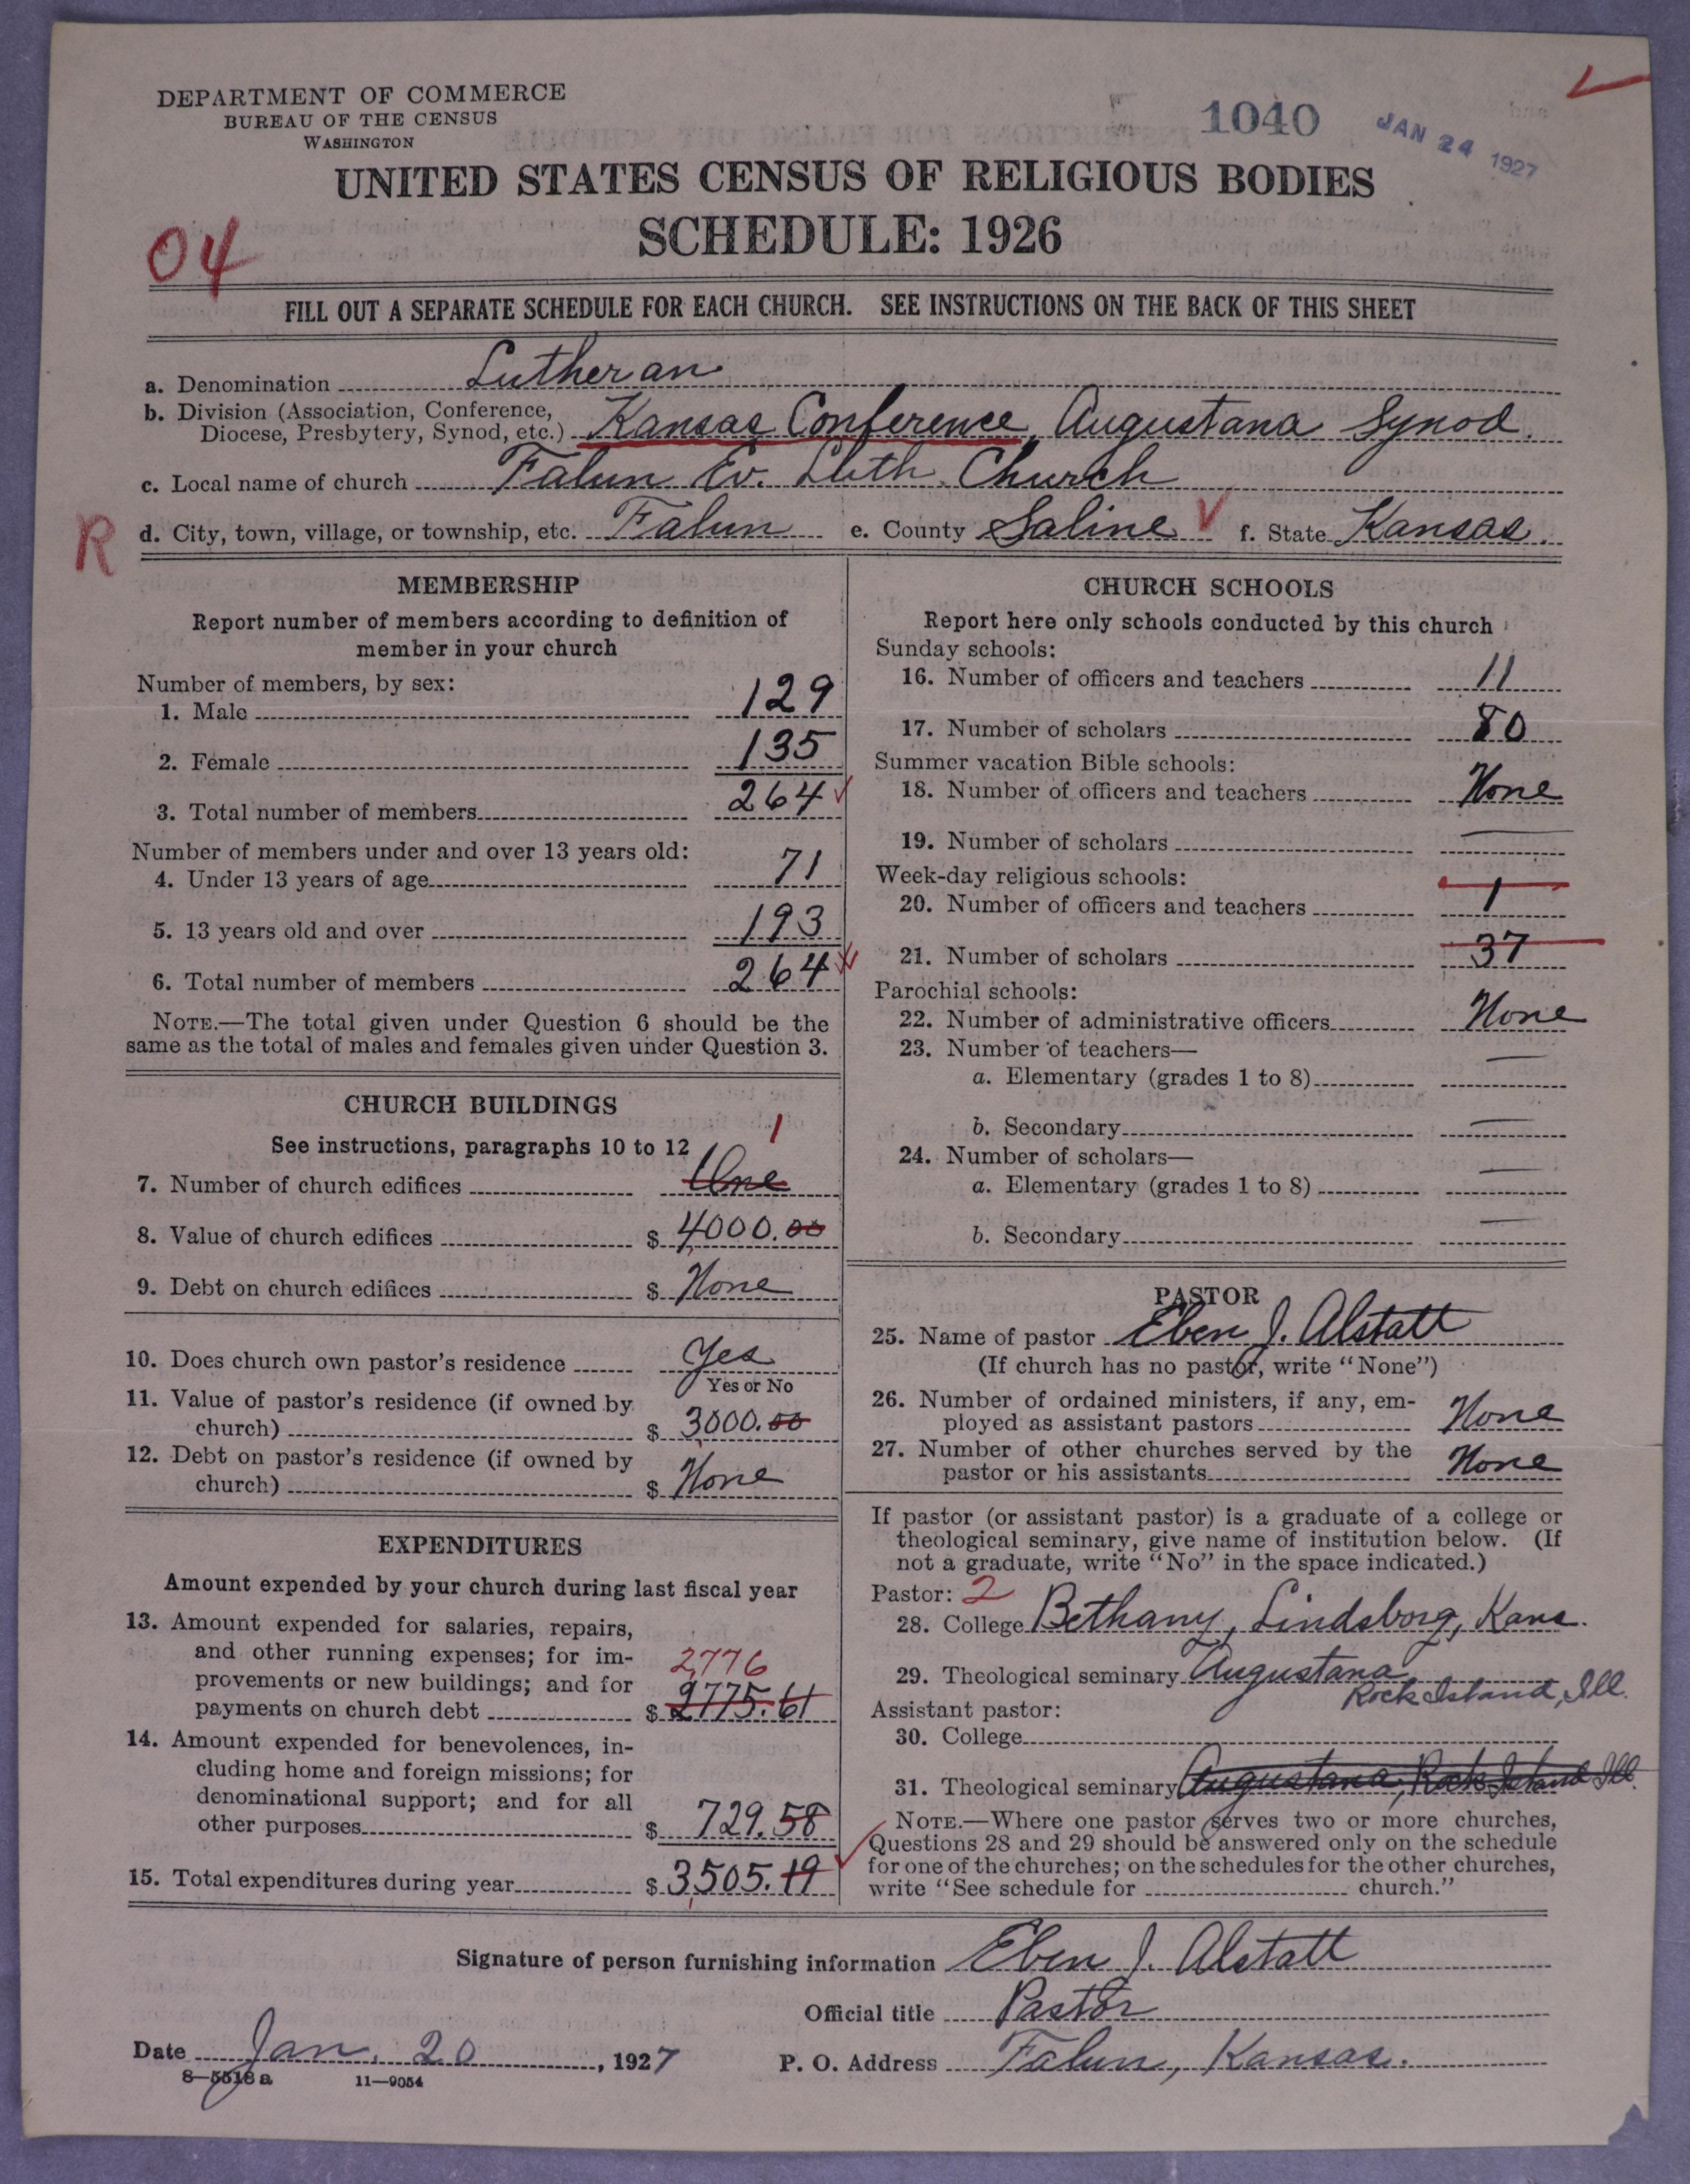 DEPARTMENT OF COMMERCE
BUREAU OF THE CENSUS
WASHINGTON
1040
JAN 24 1927
UNITED STATES CENSUS OF RELIGIOUS BODIES
SCHEDULE: 1926
04
FILL OUT A SEPARATE SCHEDULE FOR EACH CHURCH. SEE INSTRUCTIONS ON THE BACK OF THIS SHEET
a. Denomination Lutheran
b. Division (Association, Conference,
Diocese, Presbytery, Synod, etc.) Kansas Conference, Augustana Synod.
c. Local name of church Falun Ev. Luth. Church
R d. City, town, village, or township, etc. Falun e. County Saline f. State Kansas.
MEMBERSHIP
Report number of members according to definition of
member in your church
Number of members, by sex:
1. Male 129
2. Female 135
3. Total number of members 264
Number of members under and over 13 years old:
4. Under 13 years of age 71
5. 13 years old and over 193
6. Total number of members 264
NOTE.—The total given under Question 6 should be the
same as the total of males and females given under Question 3.
CHURCH BUILDINGS
See instructions, paragraphs 10 to 12
1
7. Number of church edifices One
8. Value of church edifices $ 4000.00
9. Debt on church edifices $ None
10. Does church own pastor's residence Yes
Yes or No
11. Value of pastor's residence (if owned by
church) $ 3000.00
12. Debt on pastor's residence (if owned by
church) $ None
EXPENDITURES
Amount expended by your church during last fiscal year
13. Amount expended for salaries, repairs,
and other running expenses; for im-
provements or new buildings; and for 2776
payments on church debt $ 2775.61
14. Amount expended for benevolences, in-
cluding home and foreign missions; for
denominational support; and for all
other purposes $ 729.58
15. Total expenditures during year $ 3505.19
CHURCH SCHOOLS
Report here only schools conducted by this church
Sunday schools:
16. Number of officers and teachers 11
17. Number of scholars 80
Summer vacation Bible schools:
18. Number of officers and teachers None
19. Number of scholars
Week-day religious schools:
20. Number of officers and teachers 1
21. Number of scholars 37
Parochial schools:
22. Number of administrative officers None
23. Number of teachers—
a. Elementary (grades 1 to 8)
b. Secondary
24. Number of scholars—
a. Elementary (grades 1 to 8)
b. Secondary
PASTOR
25. Name of pastor Eben J. Alstatt
(If church has no pastor, write "None")
26. Number of ordained ministers, if any, em-
ployed as assistant pastors None
27. Number of other churches served by the
pastor or his assistants None
If pastor (or assistant pastor) is a graduate of a college or
theological seminary, give name of institution below. (If
not a graduate, write "No" in the space indicated.)
Pastor: 2
28. College Bethany, Lindsborg, Kans.
29. Theological seminary Augustana
Rock Island, Ill.
Assistant pastor:
30. College
31. Theological seminary Augustana, Rock Island Ill.
NOTE.—Where one pastor serves two or more churches,
Questions 28 and 29 should be answered only on the schedule
for one of the churches; on the schedules for the other churches,
write "See schedule for church."
Signature of person furnishing information Eben J. Alstatt
Official title Pastor
Date Jan. 20, 1927 P. O. Address Falun, Kansas.
8—5518a 11—9054